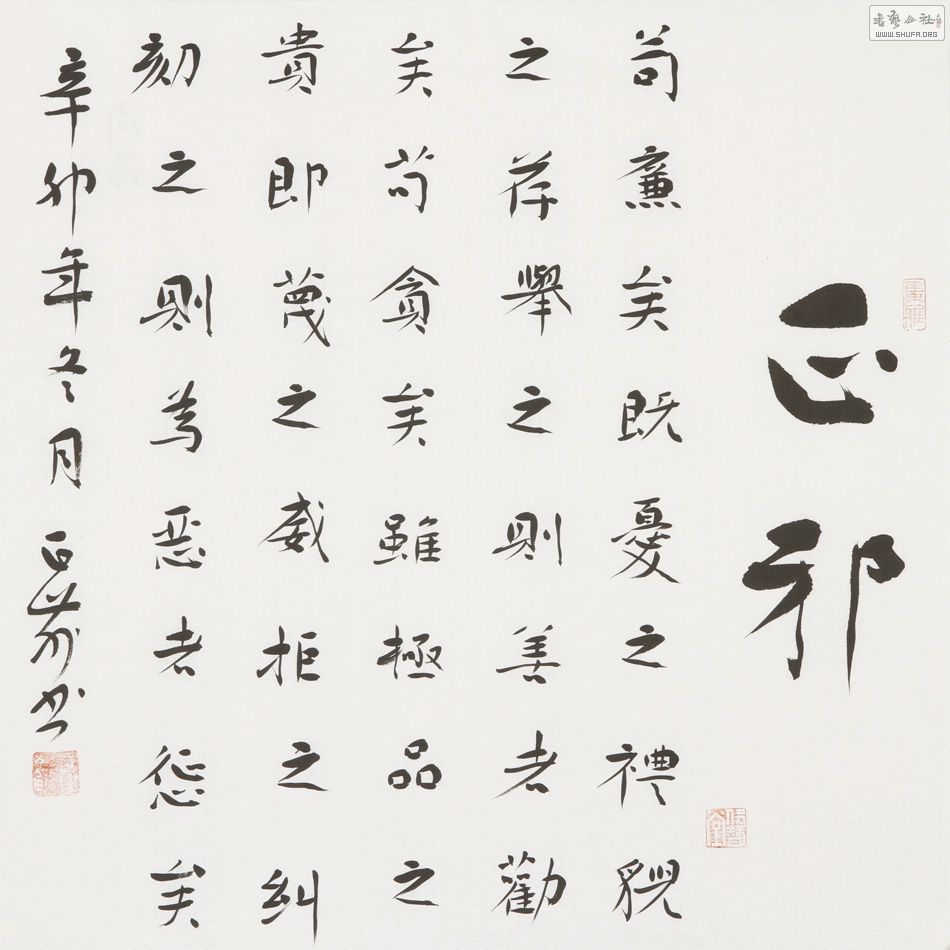 正邪
苟廉矣既憂之禮貌
之荐舉之則善者勸
矣苟貪矣雖極品之
貴即蔑之威拒之糾
刻之則為惡者惩矣
辛卯年冬月 书
書藝公社
WWW.SHUFA.ORG